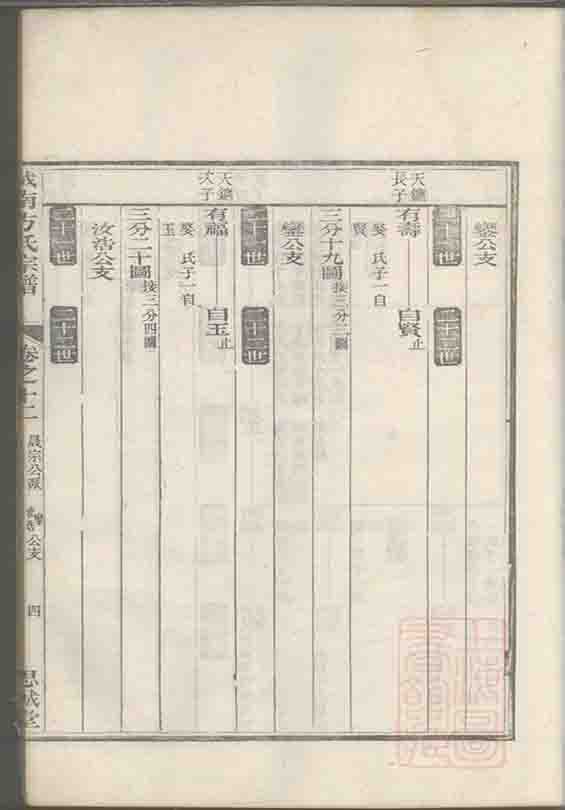 鑾公支
二十二世
二十三世
天鑑長子
有壽
娶 氏子一自賢
自賢止
三分十九圖接三分三圖
鑾公支
二十二世
二十三世
天鑑次子
有福
娶 氏子一自玉
自玉止
三分二十圖接三分四圖
汝浩公支
二十二世
二十三世
城南方氏宗譜
卷之十二
晟宗公派
公支
四
思誠堂